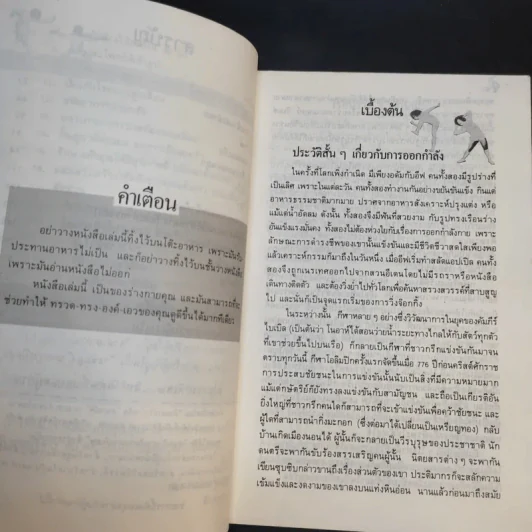 คำเตือน
อย่าวางหนังสือเล่มนี้ทิ้งไว้บนโต๊ะอาหาร เพราะมันรับ
ประทานอาหารไม่เป็น และก็อย่าวางทิ้งบนชั้นวางหนังสือ
เพราะมันอ่านหนังสือไม่ออก
หนังสือเล่มนี้ เป็นของร่างกายคุณ และมันสามารถที่จะ
ช่วยทำให้ ทรวด-ทรง-องค์-เอวของคุณดูดีขึ้นได้มากทีเดียว
เบื้องต้น
ประวัติสั้น ๆ เกี่ยวกับการออกกำลัง
ในครั้งที่โลกเพิ่งกำเนิด มีเพียงอดัมกับอีฟ คนทั้งสองมีรูปร่างที่
เป็นเลิศ เพราะในแต่ละวัน คนทั้งสองทำงานกันอย่างขยันขันแข็ง กินแต่
อาหารธรรมชาติมากมาย ปราศจากอาหารสังเคราะห์ปรุงแต่ง หรือ
แม้แต่น้ำอัดลม ดังนั้น ทั้งสองจึงมีฟันที่สวยงาม กับรูปทรงเรือนร่าง
อันแข็งแรงมั่นคง ทั้งสองไม่ต้องห่วงใยกับเรื่องการออกกำลังกาย เพราะ
ลักษณะการดำรงชีพของเขานั้นแข็งขันและมีชีวิตชีวาสดใสเพียงพอ
แล้วเคราะห์กรรมก็มาถึงในวันหนึ่ง เมื่ออีฟเริ่มทำสลัดแอปเปิล คนทั้ง
สองจึงถูกเนรเทศออกไปจากสวนอีเดนโดยไม่มีรถราหรือหนังสือ
เดินทางติดตัว และต้องวิ่งย่ำไปทั่วโลกเพื่อค้นหาสรวงสวรรค์ที่สาบสูญ
ไป และนั่นก็เป็นจุดแรกเริ่มของการวิ่งจ๊อกกิ้ง
ในระหว่างนั้น กีฬาหลาย ๆ อย่างซึ่งวิวัฒนาการในยุคของคัมภีร์
ไบเบิ้ล (เป็นต้นว่า โนอาห์ได้สอนว่ายน้ำระยะทางไกลให้กับสัตว์ทุกตัว
ที่เขาช่วยขึ้นไปบนเรือ) ก็กลายเป็นกีฬาที่ชาวกรีกแข่งขันกันมาจน
ตราบทุกวันนี้ กีฬาโอลิมปิกครั้งแรกจัดขึ้นเมื่อ 776 ปีก่อนคริสต์ศักราช
การประสบชัยชนะในการแข่งขันนั้นนับเป็นสิ่งที่มีความหมายมาก
แม้แต่กษัตริย์ก็ยังทรงลงแข่งขันกับสามัญชน และถือเป็นเกียรติอัน
ยิ่งใหญ่ที่ชาวกรีกคนใดก็สามารถที่จะเข้าแข่งขันเพื่อคว้าชัยชนะ และ
ผู้ใดที่สามารถนำกิ่งมะกอก (ซึ่งต่อมาได้เปลี่ยนเป็นเหรียญทอง) กลับ
บ้านเกิดเมืองนอนได้ ผู้นั้นก็จะกลายเป็นวีรบุรุษของประชาชาติ นัก
ดนตรีจะพากันขับร้องสรรเสริญคนผู้นั้น นิตยสารต่าง ๆ จะพากัน
เขียนซุบซิบกล่าวขานถึงเรื่องส่วนตัวของเขา ประติมากรก็จะสลักความ
เข้มแข็งและงดงามของเขาลงบนแท่งหินอ่อน นานแล้วก่อนมาถึงสมัย